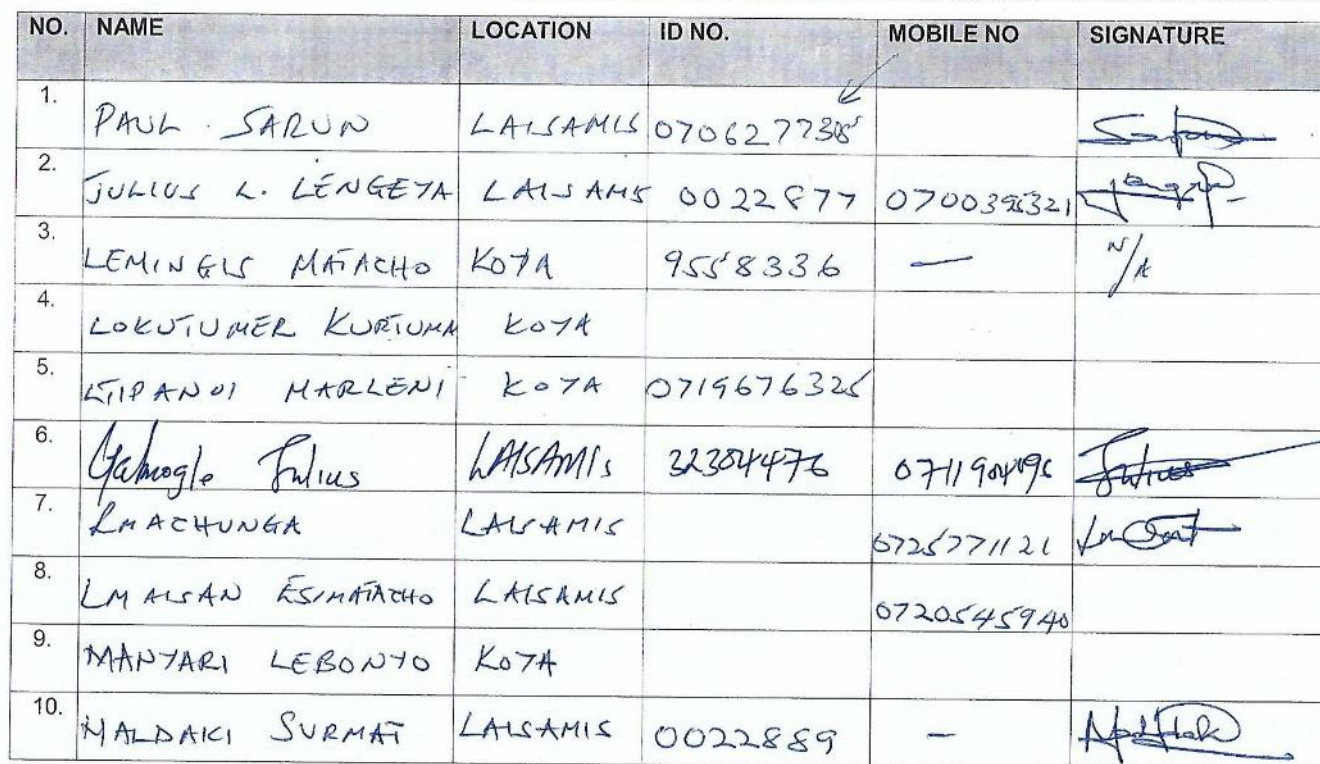 NO. NAME LOCATION ID NO. MOBILE NO SIGNATURE
1. PAUL SARUN LAISAMIS
2. JULIUS L. LENGEYA LAISAMIS 0022877
3. LEMINGIS MATACHO KOYA 9558336 — N/A
4. LOKUTUMER KURTUMA KOYA
5. LTIPANOI MARLENI KOYA 0719676325
6. Galmogle Julius LAISAMIS 32304476 Julius
7. LMACHUNGA LAISAMIS 0725771121
8. LMAISAN ESIMATACHO LAISAMIS 0720545940
9. MANYARI LEBONYO KOYA
10. NALDAKI SURMAT LAISAMIS 0022889 —